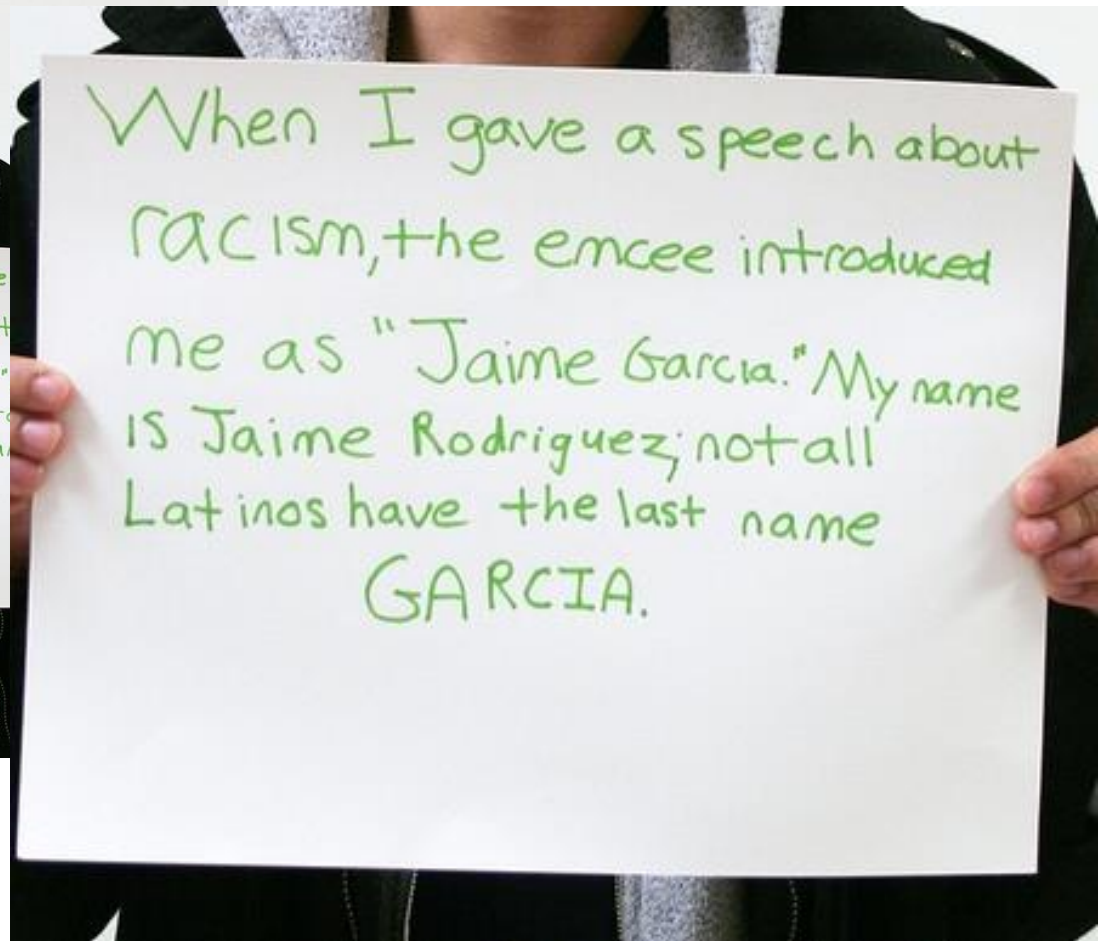 When I gave a speech about
racism, the emcee introduced
me as "Jaime Garcia." My name
is Jaime Rodriguez; not all
Latinos have the last name
GARCIA.